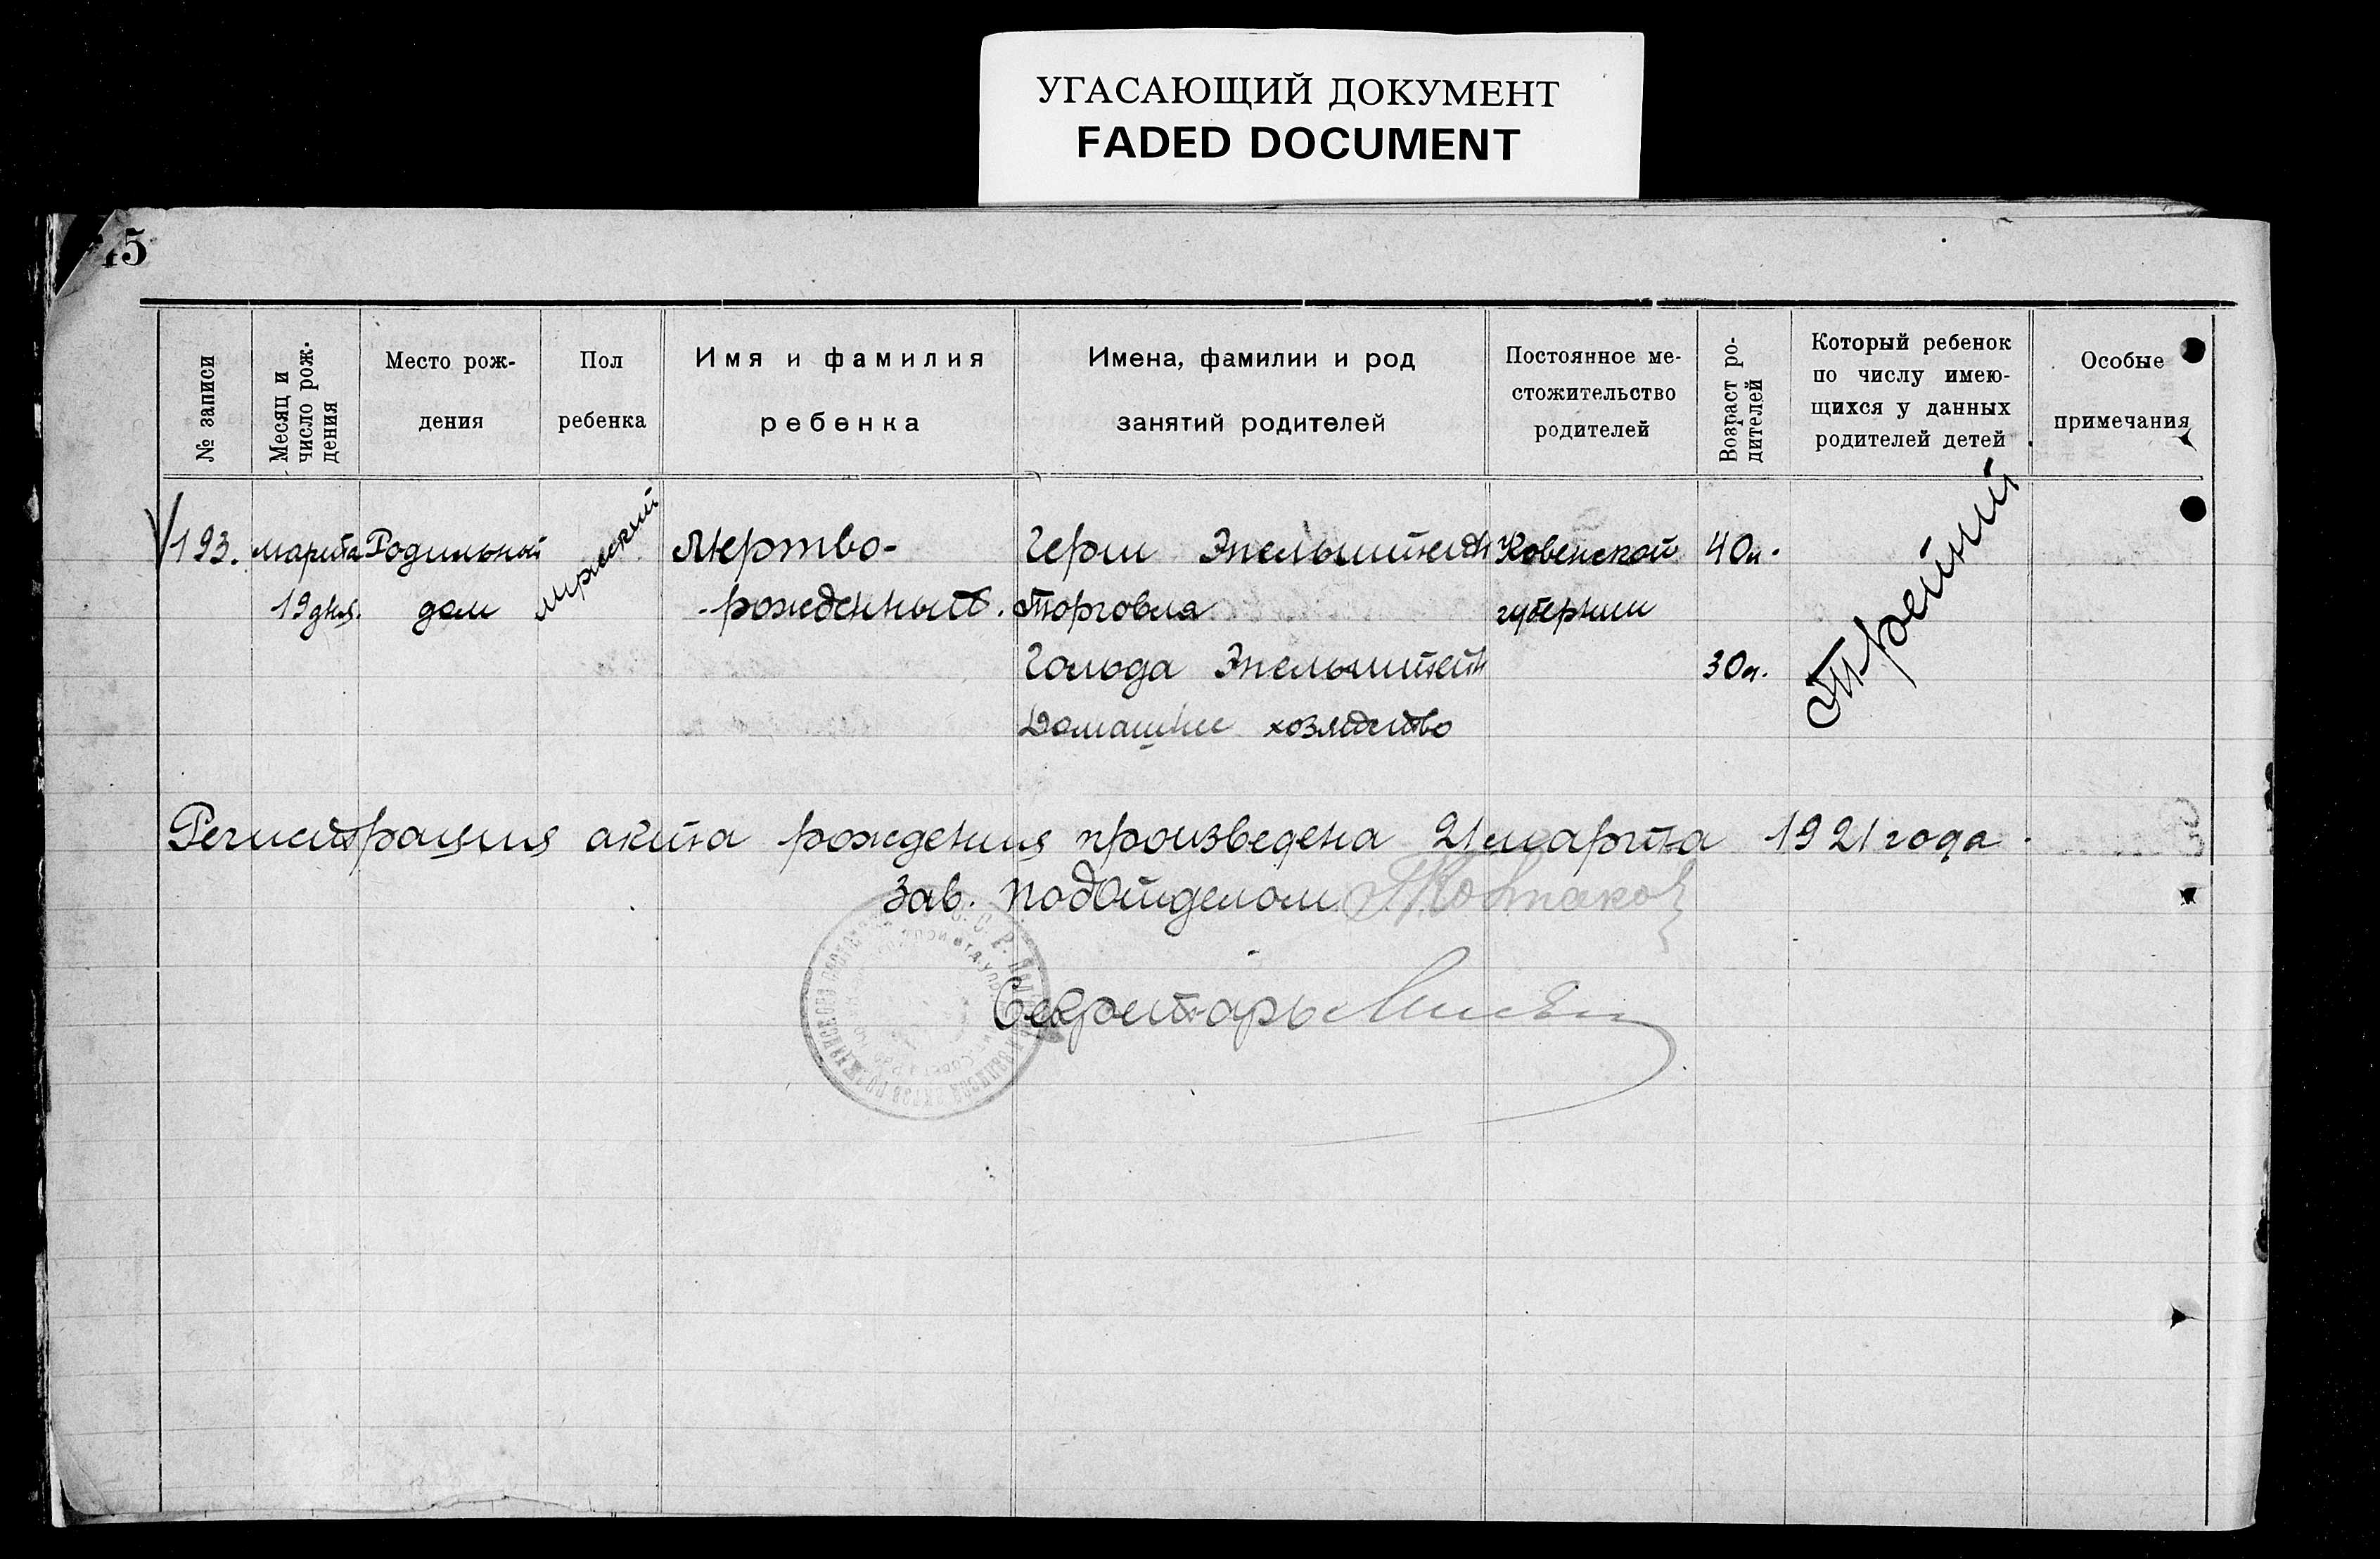 УГАСАЮЩИЙ ДОКУМЕНТ
FADED DOCUMENT
45
№ записи
Месяц и
число рож-
дения
Место рож-
дения
Пол
ребенка
Имя и фамилия
ребенка
Имена, фамилии и род
занятий родителей
Постоянное ме-
стожительство
родителей
Возраст ро-
дителей
Который ребенок
по числу имею-
щихся у данных
родителей детей
Особые
примечания
193.
марта
19 дня.
Родильный
дом
мужеский
Мертво-
-рожденный.
Герш Эпельштейн
Торговля
Гольда Эпельштейн
Домашнее хозяйство
Ковенской
губернии
40л.
30л.
Третий
Регистрация акта рождения произведена 21 марта 1921 года.
Зав. подотделом
Секретарь